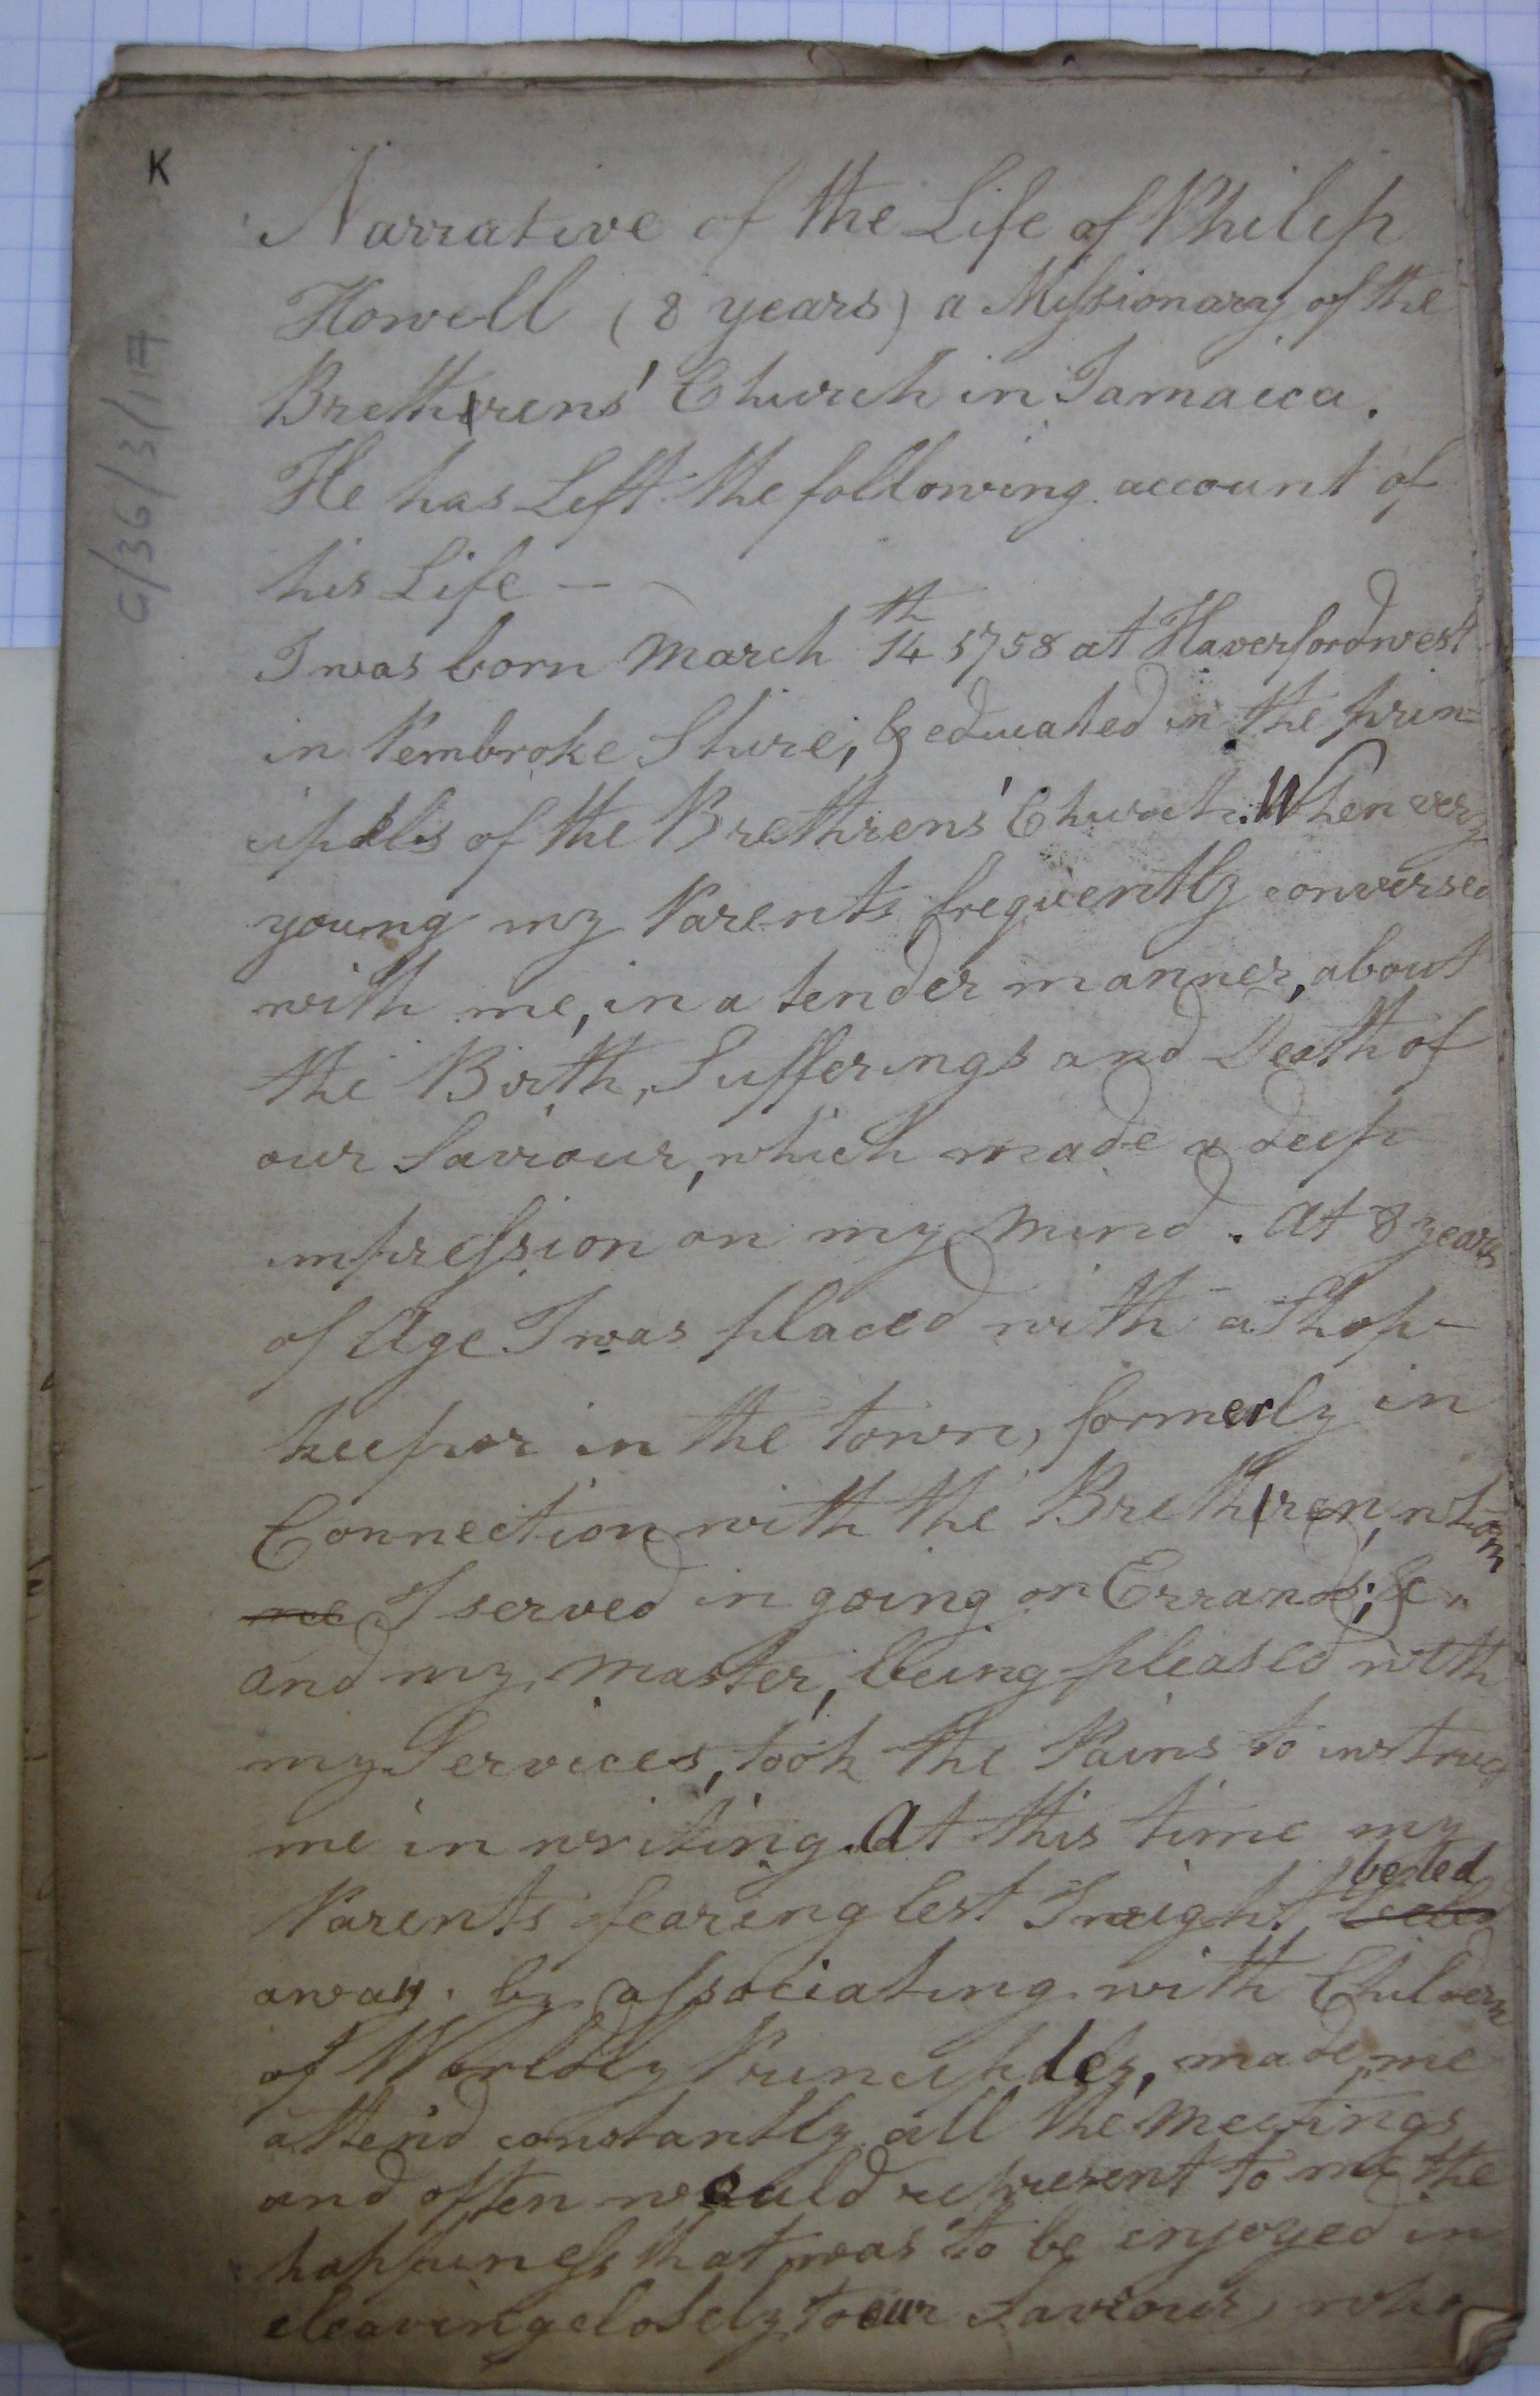 K
C/36/3/17
Narrative of the Life of Philip
Howell (8 years) a Missionary of the
Brethrens' Church in Jamaica.
He has Left the following account of
his Life —
I was born March 14th 1758 at Haverfordwest
in Pembroke Shire, & educated in the prin=
ciples of the Brethrens' Church. When very
young my Parents frequently conversed
with me, in a tender manner, about
the Birth, Sufferings and Death of
our Saviour, which made a deep
impression on my mind. At 8 years
of Age I was placed with a Shop-
keeper in the town, formerly in
Connection with the Brethren, whom
me I served in going on Errands; &
and my Master, being pleased with
my Services, took the Pains to instruct
me in writing. At this time my
Parents fearing lest I might be led
away by associating with Children
of Worldly Principles, made me
attend constantly all the Meetings
and often would represent to me the
happiness that was to be enjoyed in
cleaving closely to our Saviour, who